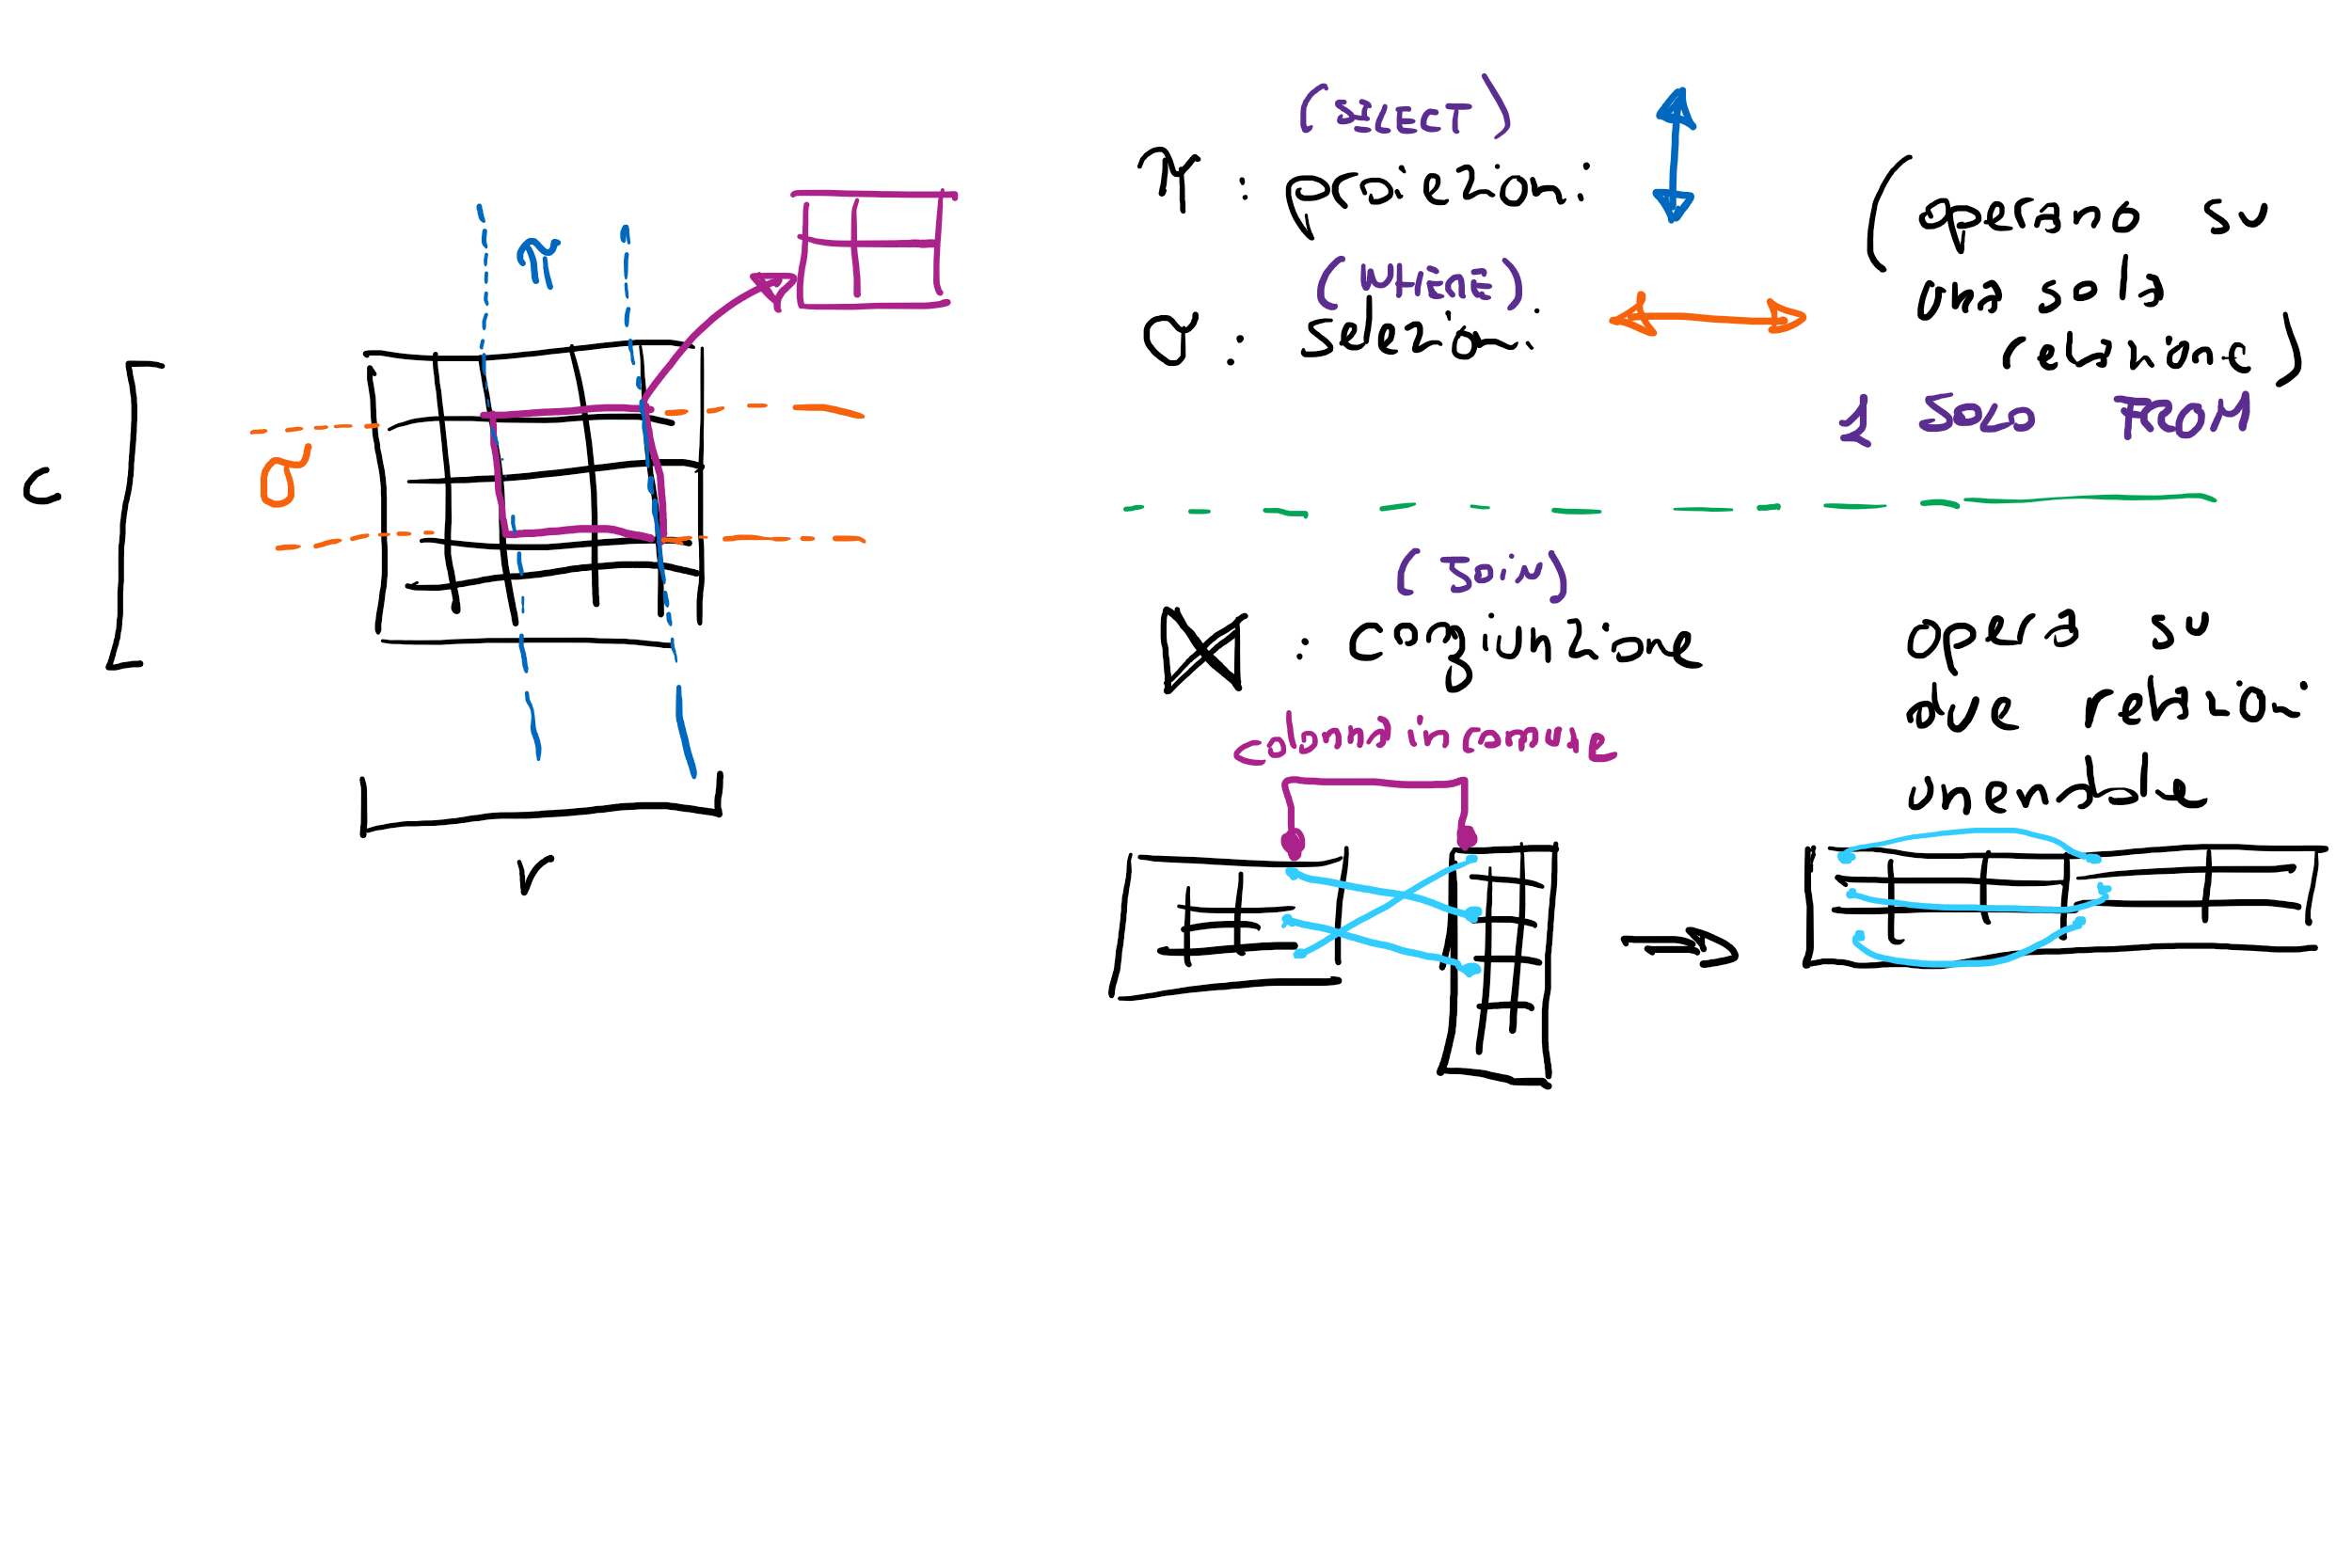 π
σ
c
r
(SELECT)
π : proiezioni
(WHERE)
σ : selezioni
(operano su
una sola
relazione)
1 SOLO FROM
(JOIN)
⋈ : congiunzione
opera su
due relazioni
colonna in comune